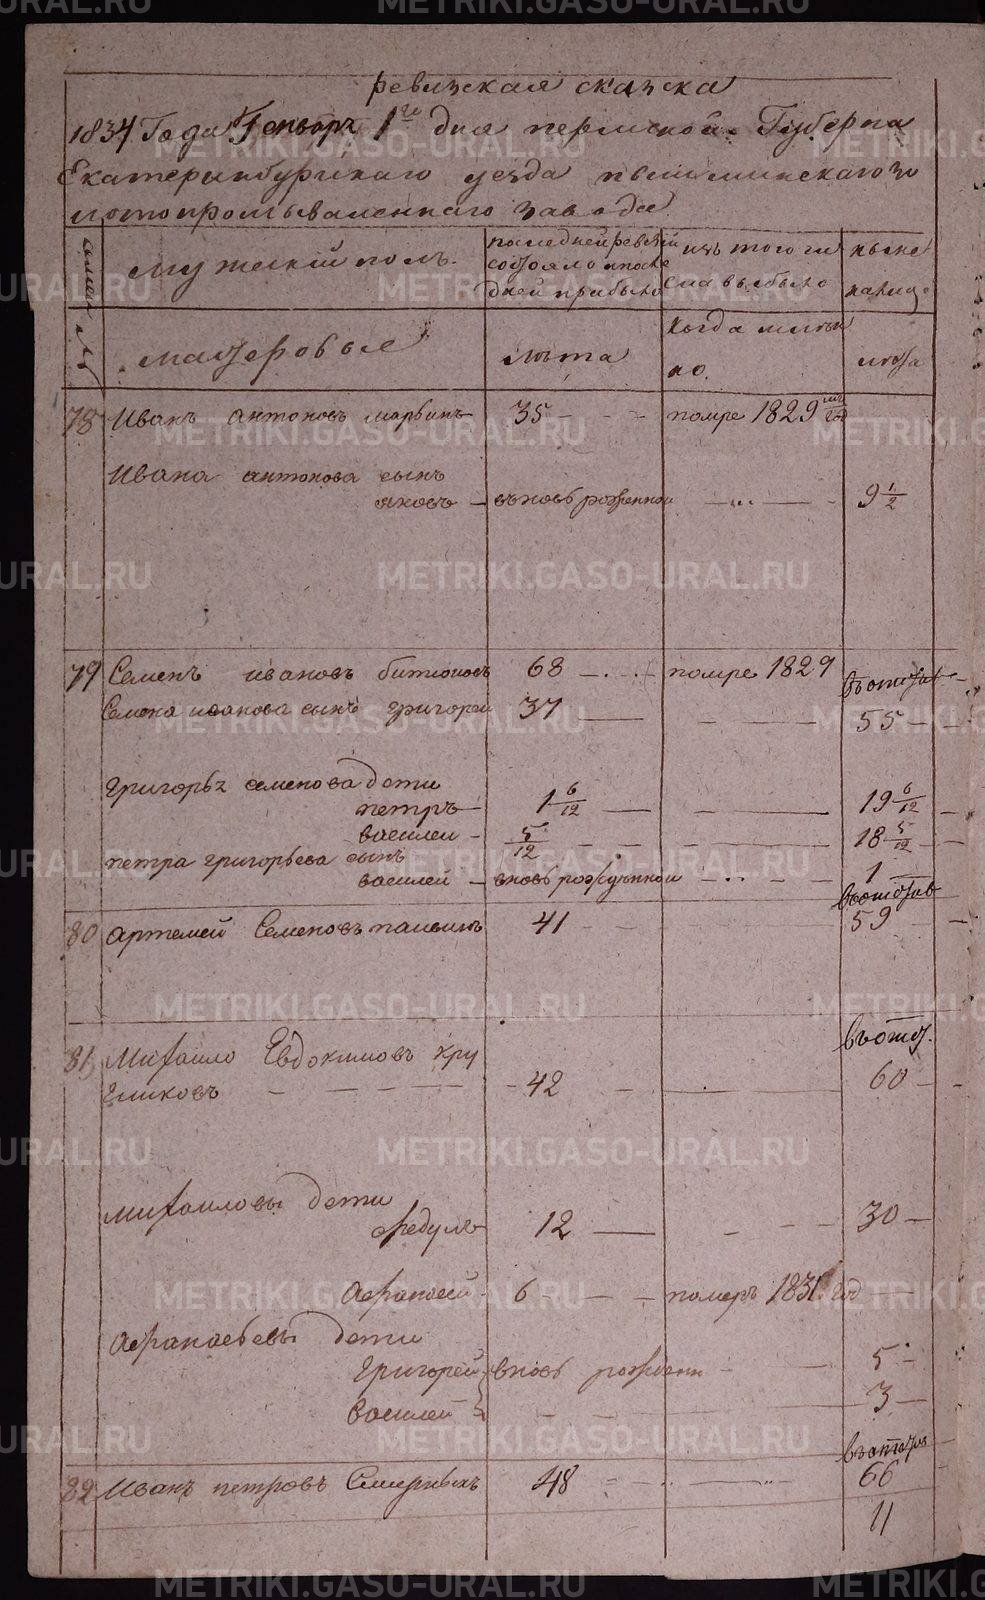 ревизская сказка
1834 Года Генваря 1го дня пермской Губерна
Екатеринбургскаго уезда пышминскаго зо
лотопромываленнаго завода
мужеский полъ.
последней ревизии
состояло и после
дней прибыло
изъ того чи
сла выбыло
ныне
налицо
мастеровые
лета
когда имянн
но.
лета
78 Иванъ антоновъ марьинъ 35 помре 1829 год
Ивана антонова сынъ
яковъ вновь рожденной 9 1/2
79 Семенъ ивановъ битюковъ 68 помре 1829
въ отстав
Семена иванова сынъ григорей 37 55
Григорья семенова дети
петръ 1 6/12 19 6/12
василеи 5/12 18 5/12
петра григорьева сынъ
василей вновь рожденной 1
въ отстав
80 Артемей Семеновъ паньшинъ 41 59
въ отст.
81 Михаило Евдокимовъ кру
гликовъ 42 60
михаиловы дети
Федулъ 12 30
Афанасей 6 померъ 1831 год
Афанасьевы дети
Григорей вновь рожденн 5
Василей 3
въ отстав
82 Иванъ петровъ Смирныхъ 48 66
11
METRIKI.GASO-URAL.RU